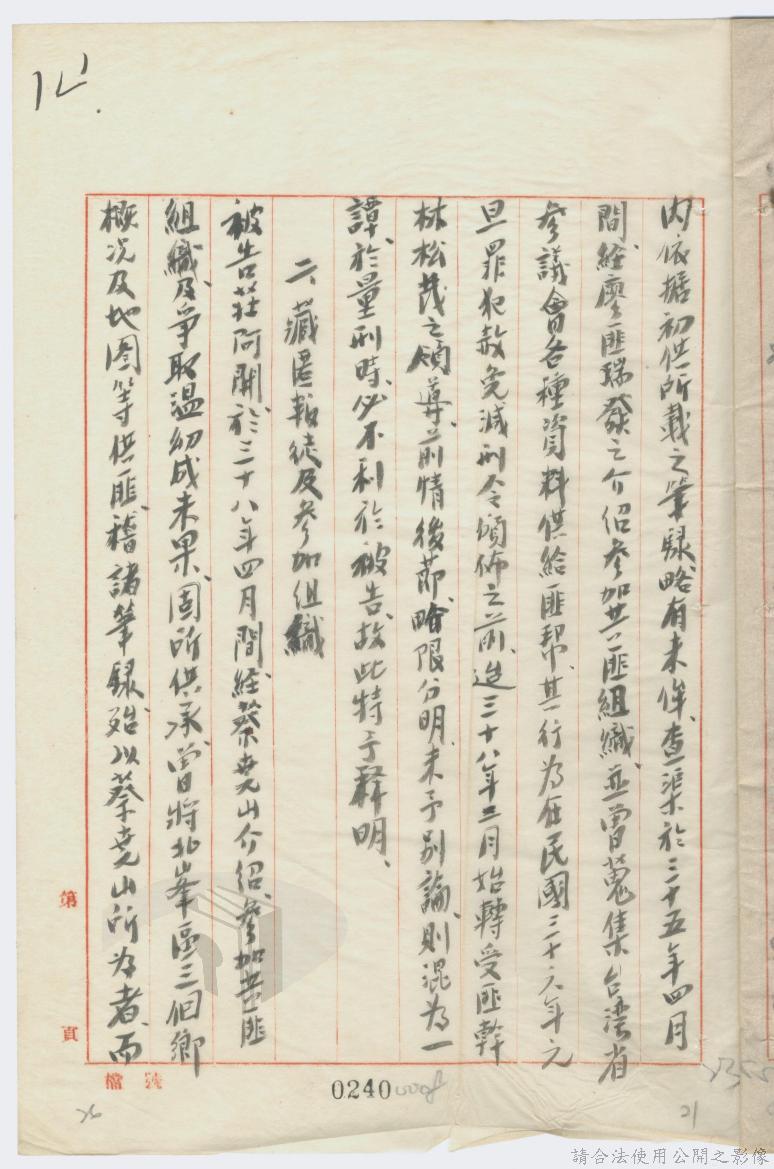 内依据初供所載之筆録略有未侔、查渠於三十五年四月
間、經廖匪瑞發之介绍參加共匪組織、並曾蒐集台湾省
參議會各種資料供給匪幫、其行為在民國三十六年元
旦罪犯赦免減刑令頒佈之前、迨三十八年三月始轉受匪幹
林松茂之領導、前情後節、略限分明、未予别論、則混為一
譚、於量刑時、必不利於被告、故此特予釋明、
二、藏匿叛徒及參加組織
被告莊阿開、於三十八年四月間、經蔡尭山介绍、參加共匪
組織、及爭取温幼成未果、固所供承、曾將北峯區三個鄉
概况及地圖等供匪、稽諸筆録、殆以蔡尭山所為者、而
第 頁
檔 號
0240
21
26
請合法使用公開之影像